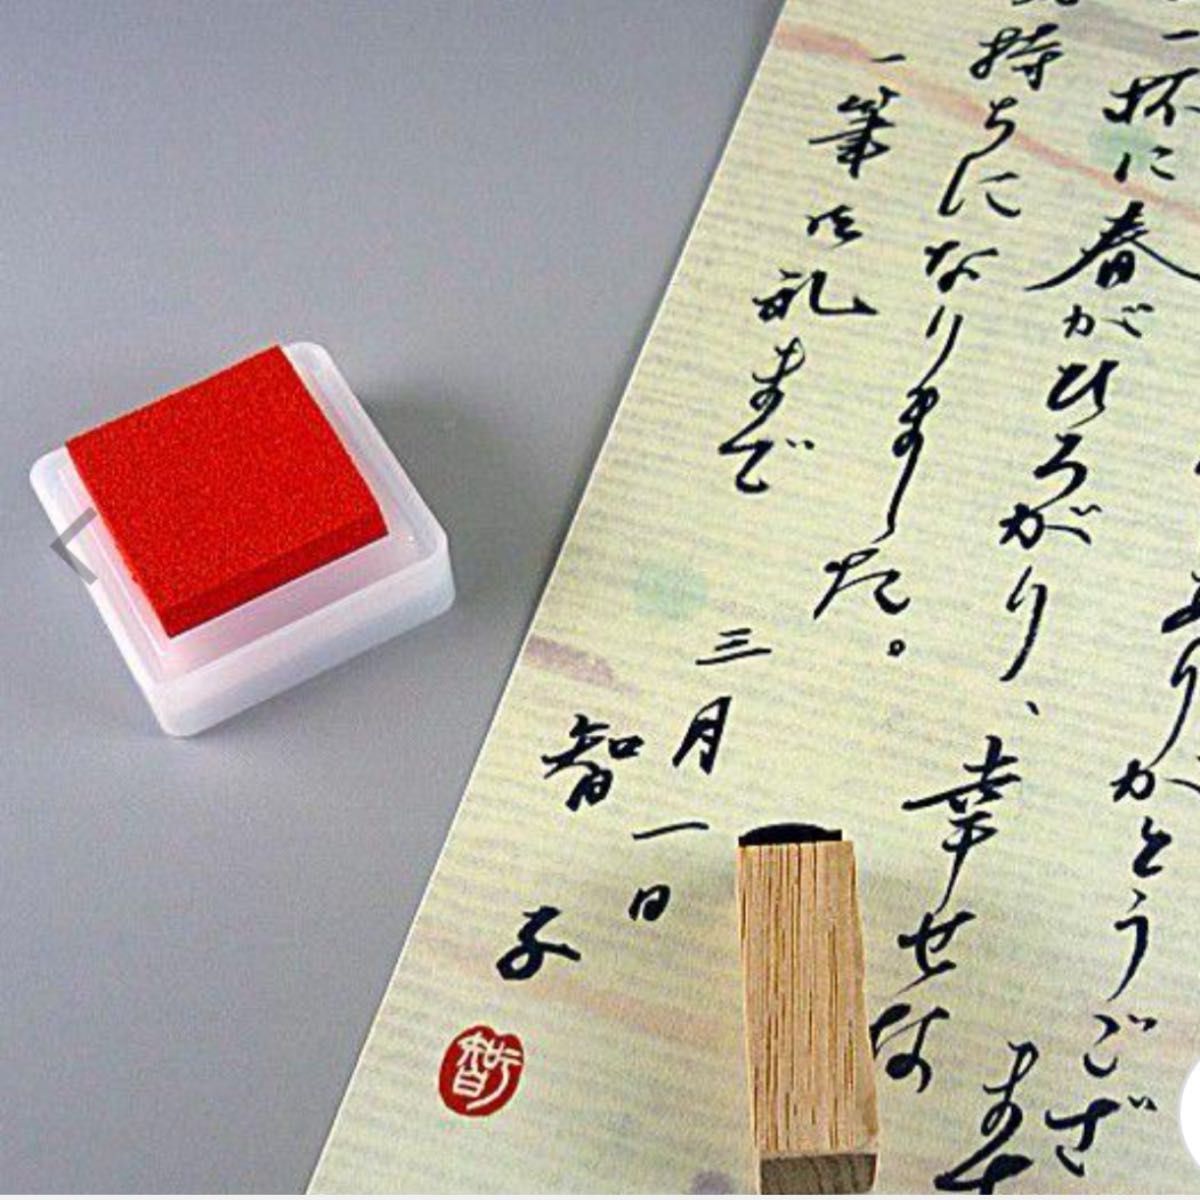 ありがとうござ
ます
一杯に春がひろがり、幸せな
持ちになりました。
一筆御礼まで
三月一日
智子
智